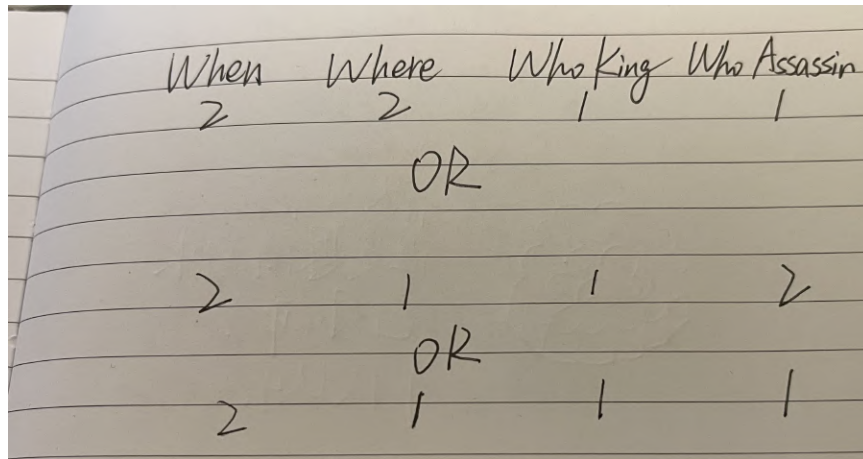 When Where Who King Who Assassin
2 2 1 1
OR
2 1 1 2
OR
2 1 1 1